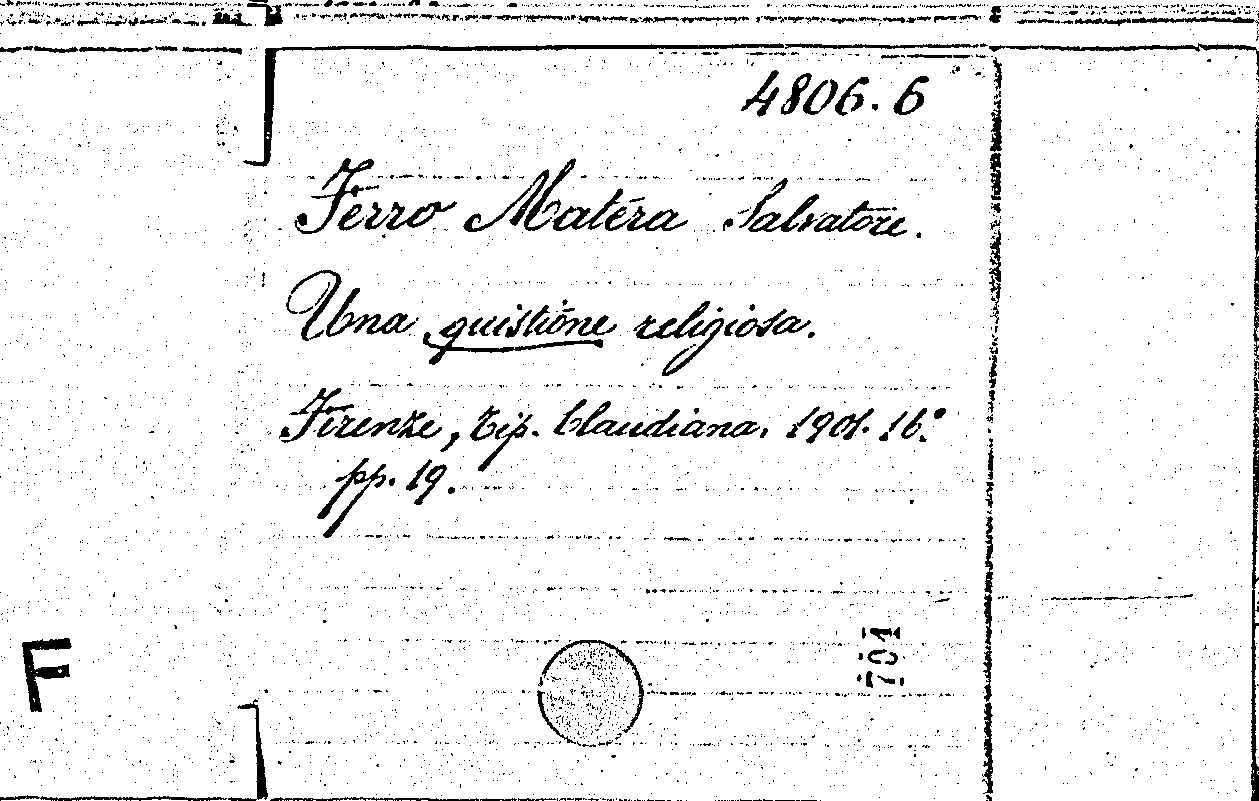 4806.6
Ferro Matera Salvatore.
Una quistione religiosa.
Firenze, Tip. Claudiana. 1901. 16.°
pp. 19.
701
F